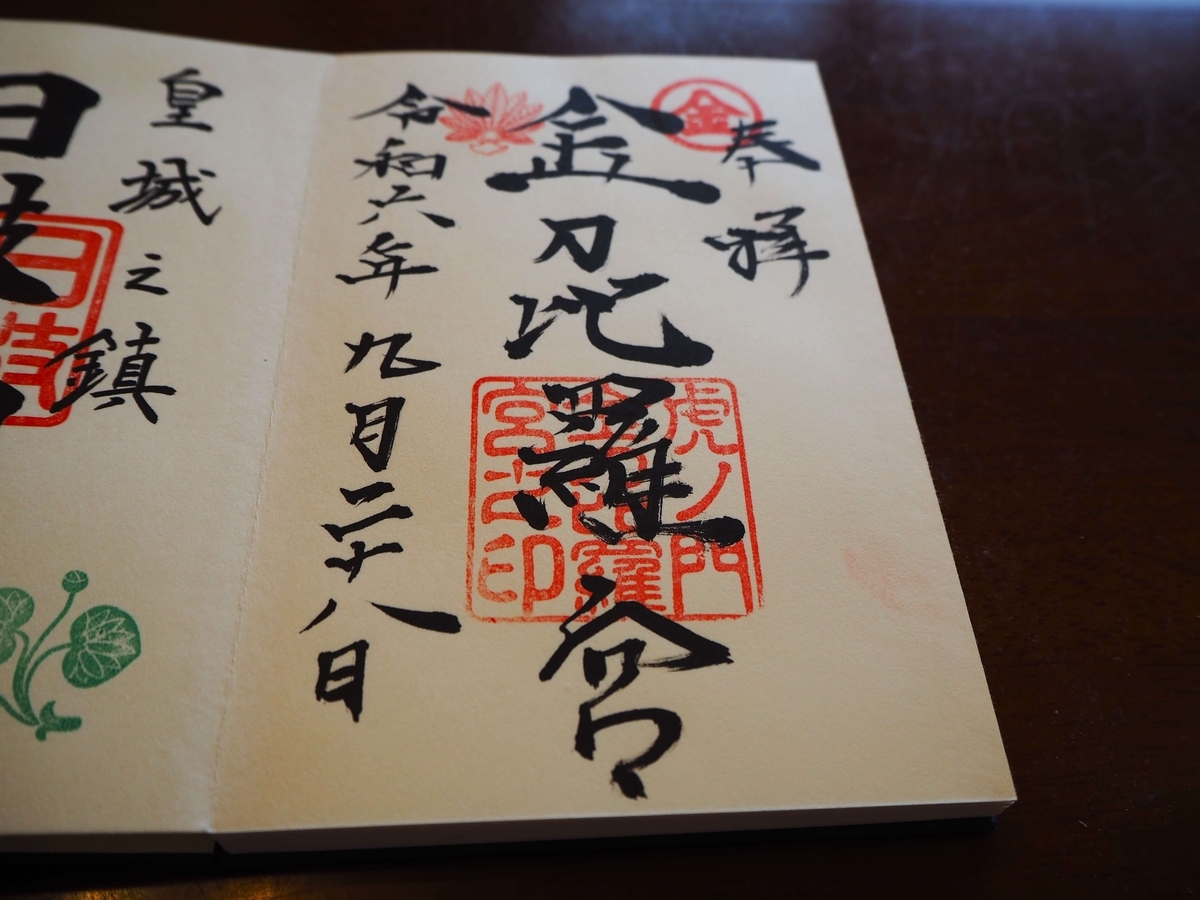 奉拝
金
金刀比羅宮
虎ノ門
金刀比羅
宮之印
令和六年九月二十八日
皇城之鎮
日枝
日枝